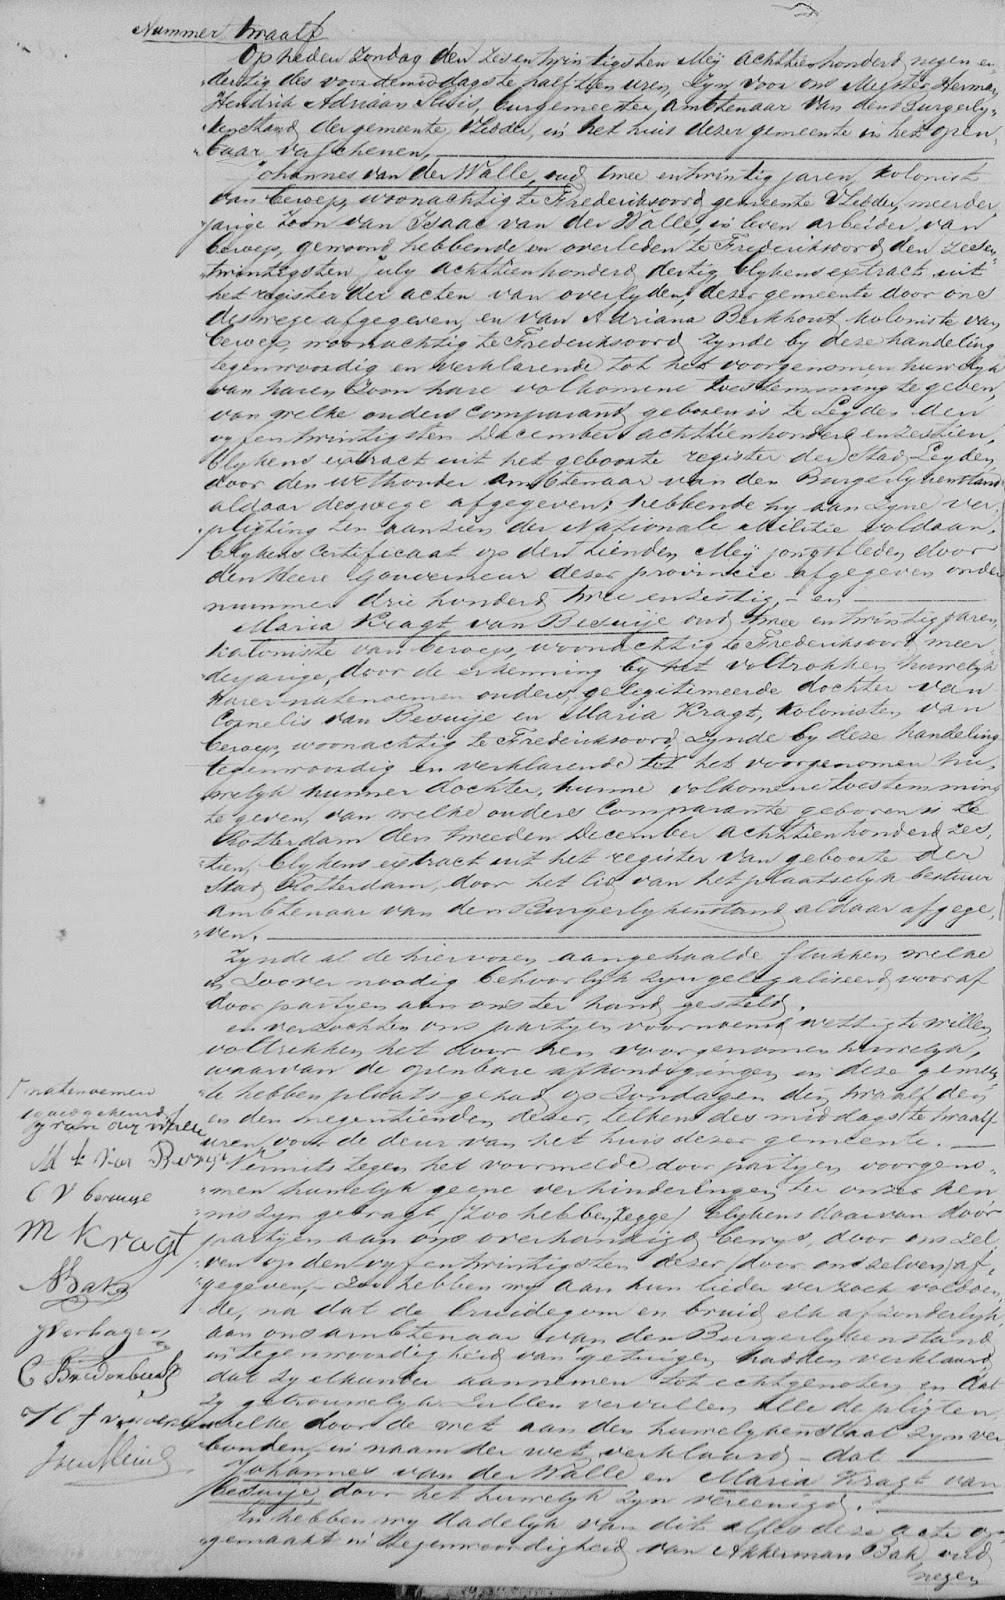 Nummer twaalf
Op heden Zondag den zesentwintigsten Mey achttienhonderd negen en
dertig des voordemiddags te half tien uren, Zyn voor ons Meester Herman
Hendrik Adriaan Sluis, burgemeester, Ambtenaar van den Burgerly-
kenstand der gemeente Vledder, in het huis dezer gemeente in het open
baar verschenen,
Johannes van der Walle, oud twee entwintig jaren, kolonist
van beroep, woonachtig te Frederiksoord gemeente Vledder, meerder
jarige zoon van Isaac van der Walle, in leven arbeider van
beroep, gewoond hebbende en overleden te Frederiksoord den zesen
twintigsten July achttienhonderd dertig, blykens extract uit
het register der acten van overlyden, dezer gemeente door ons
deswege afgegeven, en van Adriana Berkhout, koloniste van
beroep, woonachtig te Frederiksoord, zynde by deze handeling
tegenwoordig en verklarende tot het voorgenomen huwelyk
van haren Zoon hare volkomene toestemming te geven,
van welke ouders Comparant geboren is te Leyden den
vyfentwintigsten December achttienhonderd en zestien,
blykens extract uit het geboorte register der Stad Leyden
door den wethouder ambtenaar van den Burgerlykenstand
aldaar deswege afgegeven; hebbende hy aan zyne ver
pligting ten aanzien der Nationale Militie voldaan,
blykens Certificaat op den tienden Mey jongstleden door
den Heere Gouverneur dezer provincie afgegeven onder
nummer drie honderd twee en zestig, - en
Maria Kragt van Besuije oud twee entwintig jaren,
koloniste van beroep, woonachtig te Frederiksoord, meer
derjarige, door de erkenning by het voltrokken huwelyk
harer natenoemen ouders, gelegitimeerde dochter van
Cornelis van Besuije en Maria Kragt, kolonisten van
beroep, woonachtig te Frederiksoord, zynde by deze handeling
tegenwoordig en verklarende tot het voorgenomen hu
welyk hunner dochter, hunne volkomene toestemming
te geven, van welke ouders Comparante geboren is te
Rotterdam den tweeden December achttienhonderd zes
tien, blykens extract uit het register van geboorte der
Stad Rotterdam, door het lid van het plaatselyk bestuur
ambtenaar van den Burgerlykenstand aldaar afgege
ven,
Zynde al de hiervoren aangehaalde stukken welke
in zoover noodig behoorlyk zyn gelegaliseerd, vooraf
door partyen aan ons ter hand gesteld,
en verzochten ons partyen voornoemd wettig te willen
voltrekken het door hen voorgenomen huwelyk,
waarvan de openbare afkondigingen in deze gemeen
te hebben plaats gehad op Zondagen den twaalfden
en den negentienden dezer, telkens des middags te twaalf
uren, voor de deur van het huis dezer gemeente.
Vermits tegen het voormelde door partyen voorgeno
men huwelyk geene verhinderingen ter onzer ken
nis zyn gebragt, (zoo hebben, zegge) blykens daarvan door
partyen aan ons overhandigd bewys, door ons zel
ven op den vyfentwintigsten dezer (door ons zelven) af
gegeven, - Zoo hebben wy aan hun lieder verzoek voldoen
de, na dat de bruidegom en bruid elk afzonderlyk
aan ons ambtenaar van den Burgerlykenstand
in tegenwoordigheid van getuigen hadden verklaard,
dat zy elkander aannemen tot echtgenoten, en dat
zy getrouwelyk zullen vervullen alle de pligten
welke door de wet aan den huwelykenstaat zyn ver
bonden, in naam der wet, verklaard, dat
Johannes van der Walle en Maria Kragt van
Besuije door het huwelyk zyn vereenigd.
En hebben wy dadelyk van dit alles deze acte op
gemaakt in tegenwoordigheid van Akkerman Bak, oud
negen
natenoemen
goedgekeurd
M k Van Besuije
C V besuije
M Kragt
A Bak
J Verhagen
C Bredenbeek